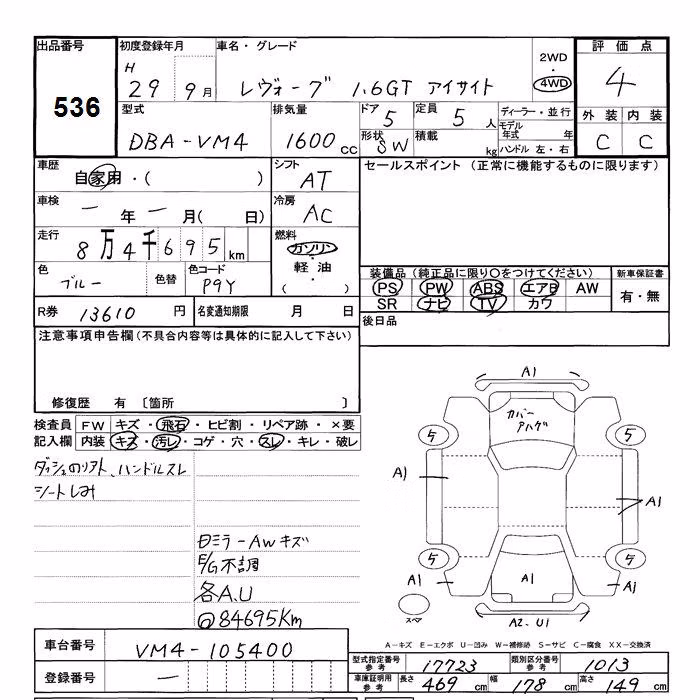 出品番号 初度登録年月 車名・グレード 2WD・4WD 評価点
536 H 29 9月 レヴォーグ 1.6GT アイサイト 4
型式 DBA-VM4 排気量 1600cc ドア 5 定員 5人 ディーラー・並行 外装 内装
形状 SW 積載 kg モデル年式 年 ハンドル 左・右 C C
車歴 自家用・( ) シフト AT セールスポイント (正常に機能するものに限ります)
車検 ー年ー月( 日) 冷房 AC
走行 8万4千695km 燃料 ガソリン・軽油・( )
色 ブルー 色替 色コード P9Y
装備品(純正品に限り○をつけてください) 新車保証書
PS PW ABS エアB AW 有・無
SR ナビ TV カワ
R券 13610円 名変通知期限 月 日 後日品
注意事項申告欄(不具合内容等は具体的に記入して下さい)
修復歴 有 〔箇所 〕
検査員 FW キズ・飛石・ヒビ割・リペア跡・×要
記入欄 内装 キズ・汚レ・コゲ・穴・スレ・キレ・破レ
ハンドルスレ
シートしみ
ミラーAWキズ
E/G不調
各A.U
@84695Km
A1
カバー
5 5
A1 A1
5 5
A1 A1 A1
スペア A2、U1
A-キズ E-エクボ U-凹み W-補修跡 S-サビ C-腐食 XX-交換済
車台番号 VM4-105400
型式指定番号 参考 17723 類別区分番号 参考 1013
登録番号 ー
車庫証明用 参考 長さ 469cm 幅 178cm 高さ 149cm